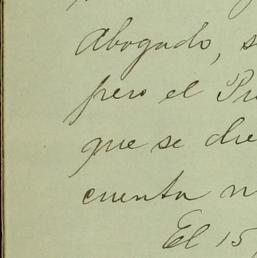 Abogado, s
pero el Pr
que se die
cuenta
El 15